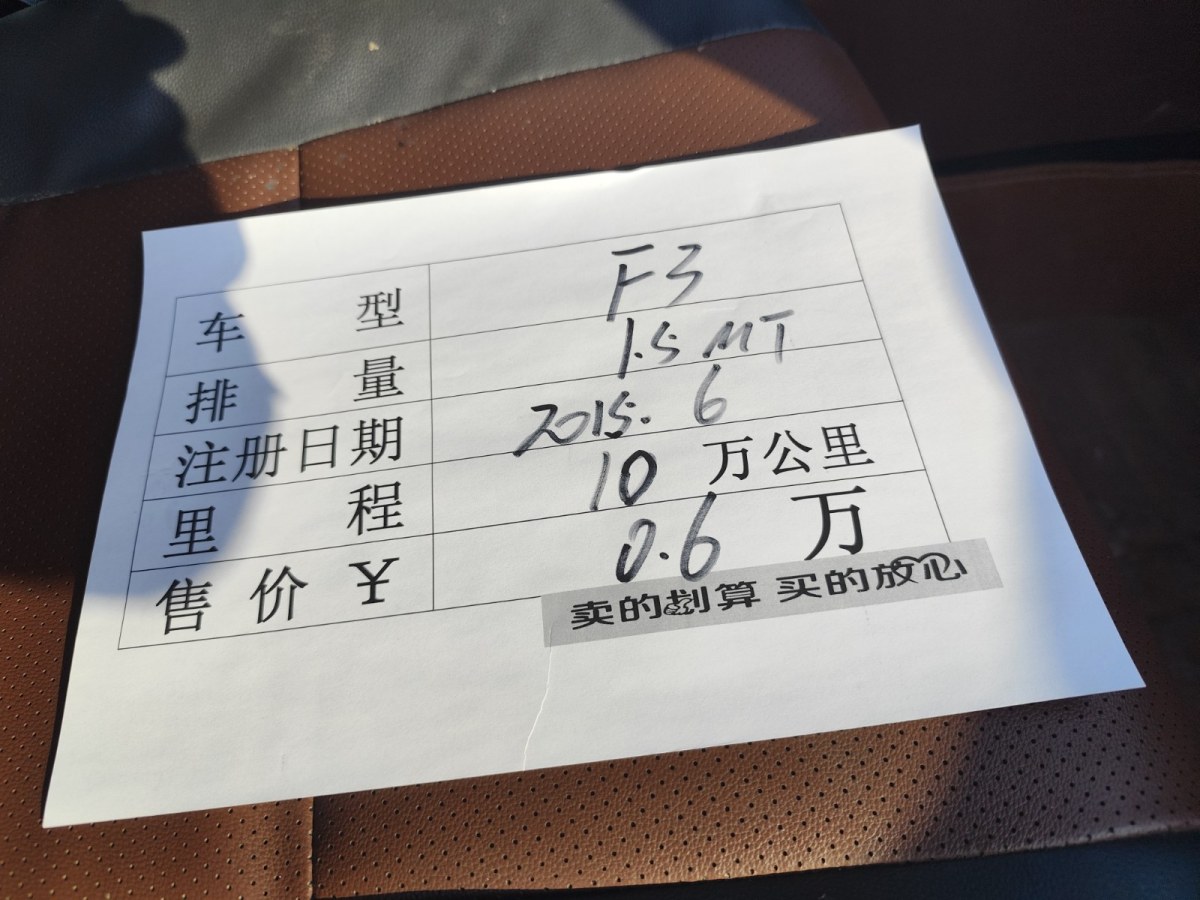 车型 F3
排量 1.5 MT
注册日期 2015.6
里程 10 万公里
售价￥ 0.6 万
卖的划算 买的放心